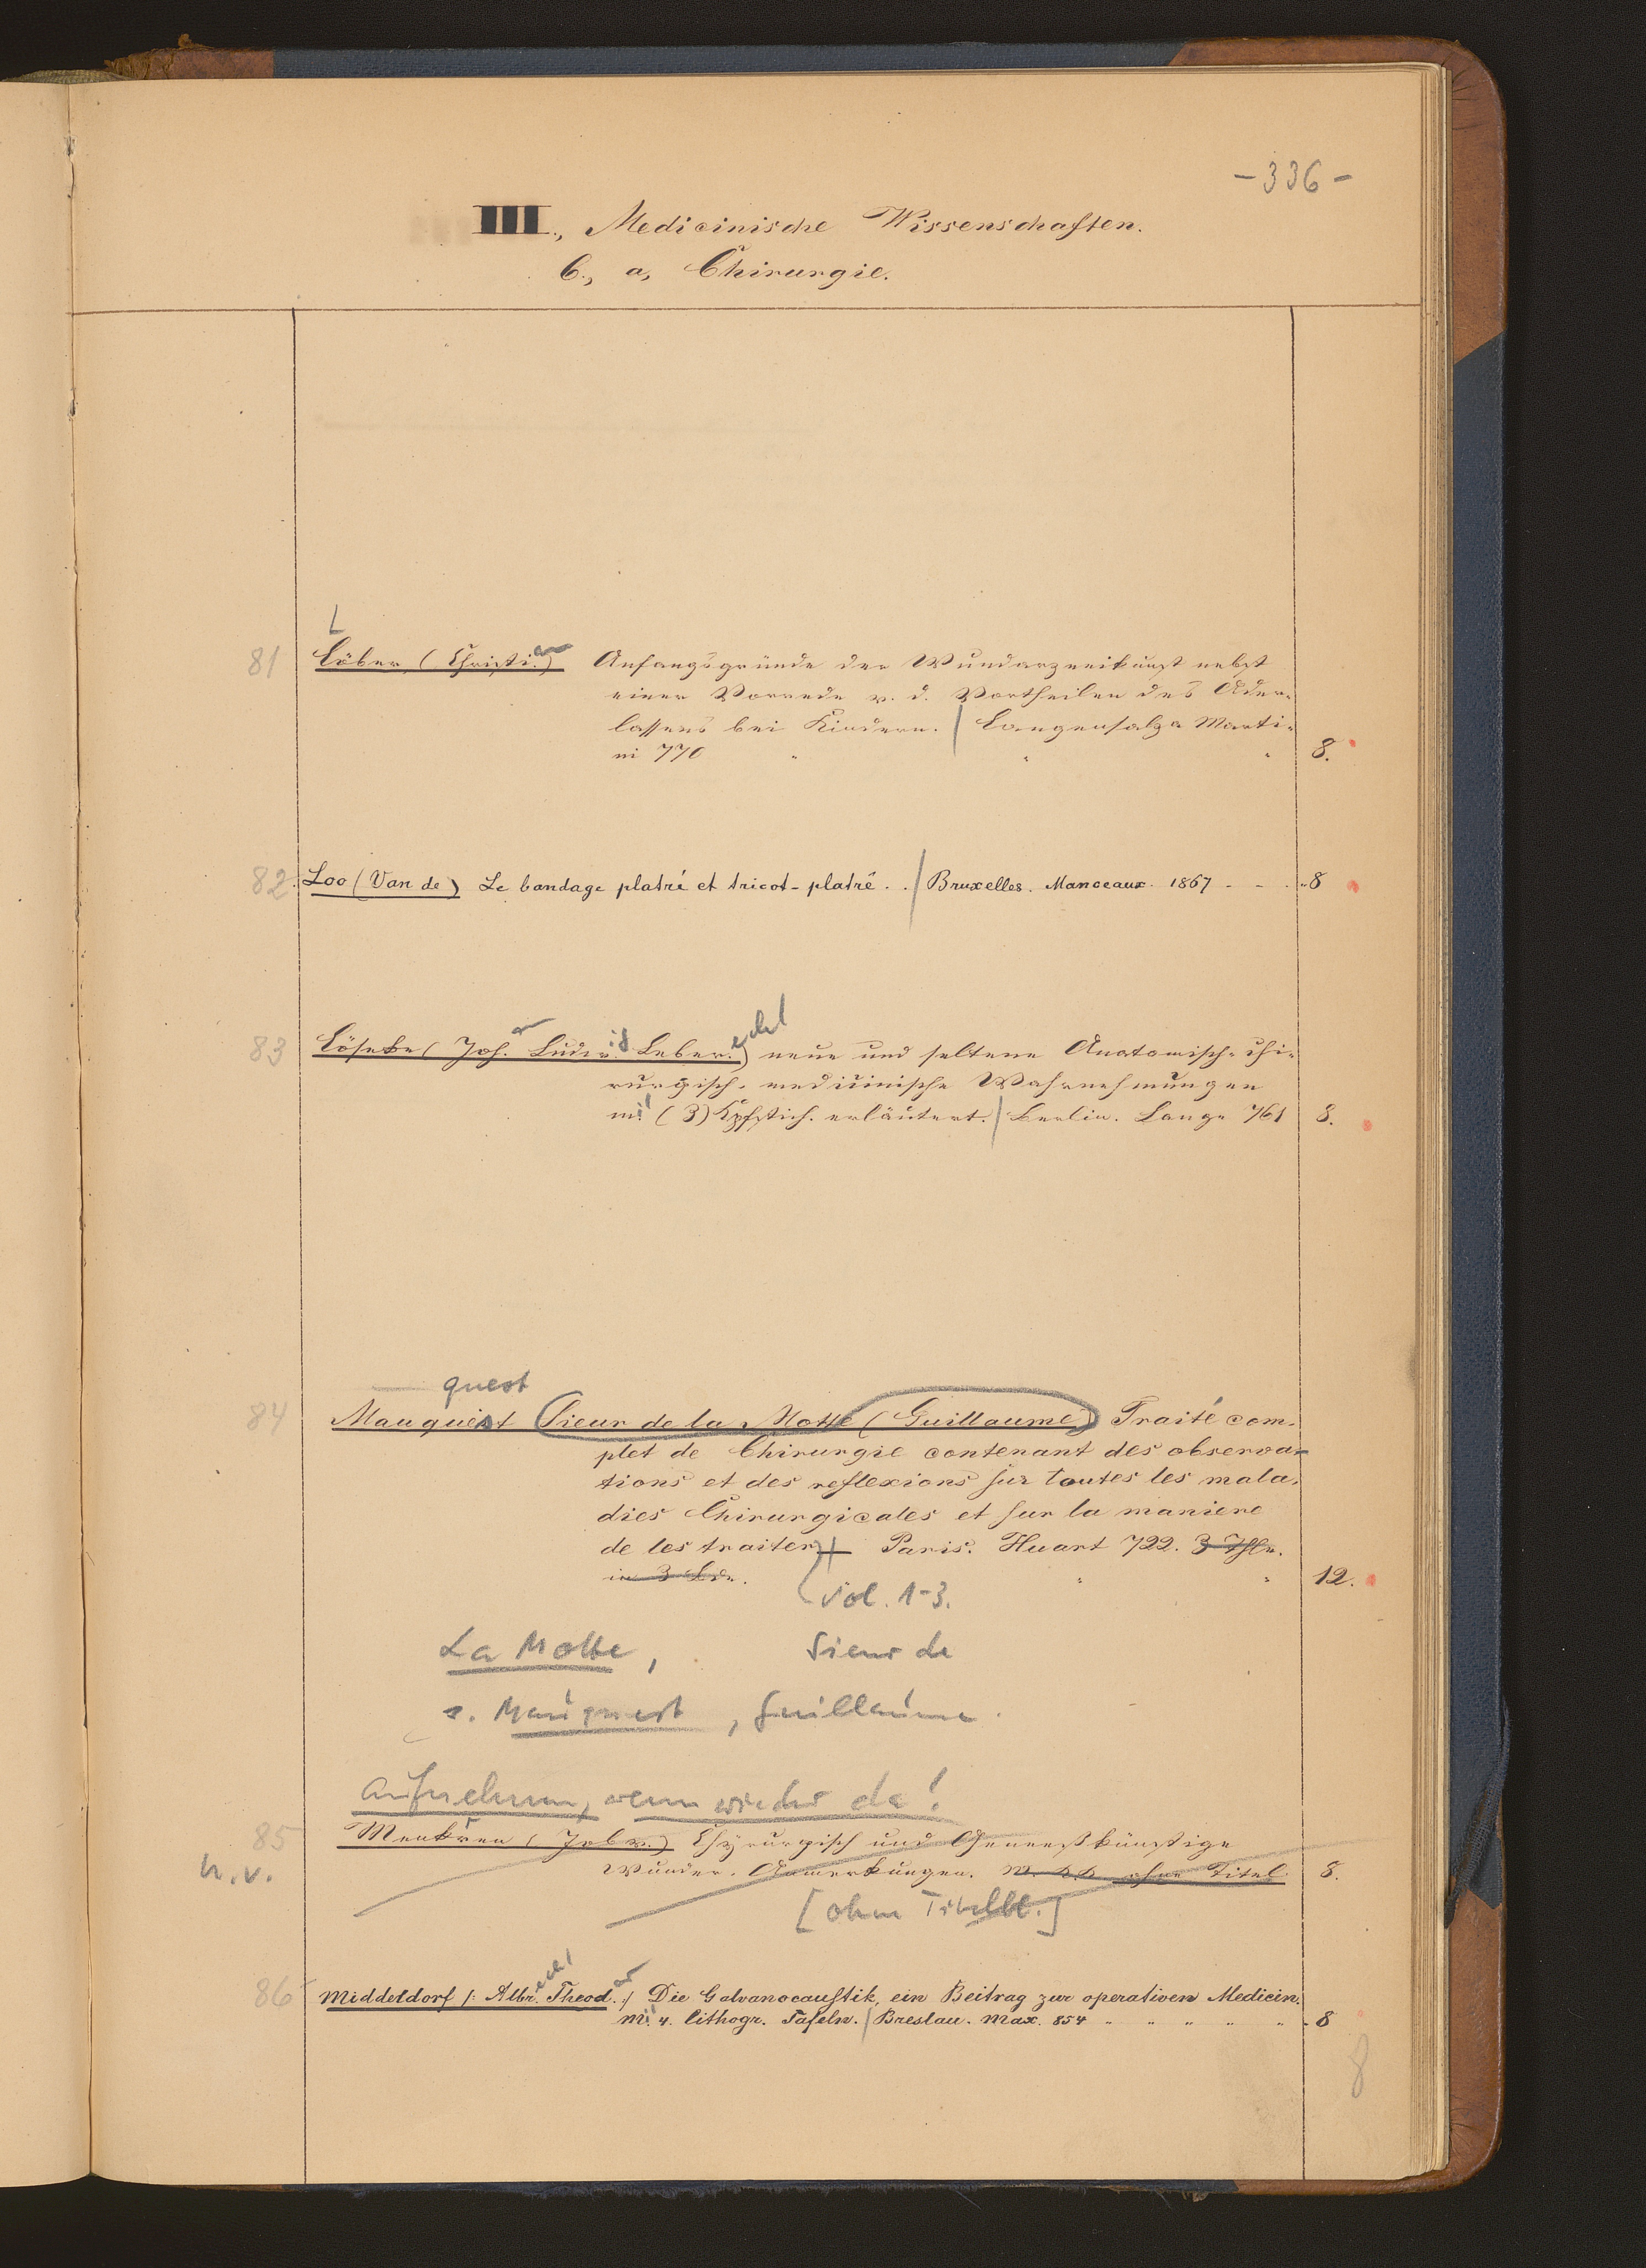 -336-
III., Medicinische Wissenschaften.
C., a, Chirurgie.
L
81 Löber (Christian) Anfangsgründe der Wundarzneikunst nebst
einer Vorrede v. d. Vortheilen des Ader-
lassens bei Kindern. / Langensalza Marti-
ni 770 8.
82. Loo (Van de) Le bandage platré et tricot-platré . . / Bruxelles. Manceaux. 1867 - - . . 8
83 Löseke (Joh.an Ludwig Leberecht) neue und seltene Anatomisch-chi-
rurgisch-medicinische Wahrnehmungen
mit (3) Kpfstich. erläutert. / Berlin. Lange 761 8.
quest
84 Mauquest Sieur de la Motte (Guillaume) Traité com-
plet de Chirurgie contenant des observa-
tions et des reflexions sur toutes les mala-
dies Chirurgicales et sur la maniere
de les traiter Paris. Huart 722. 3 Thle.
in 3 Bdn. 12.
Vol. 1-3.
La Motte, Sieur de
s. Mauquest, Guillaume.
Aufnehmen, wenn wieder da!
85 Meekren (Job v.) Chÿrurgisch und Geneeskünstige
n.v. Wunder-Anmerkungen. ohne Titel 8.
[ohne Titelbl.]
86 Middeldorf /: Albrecht Theodor :/ Die Galvanocaustik, ein Beitrag zur operativen Medicin.
mit 4. lithogr. Tafeln. / Breslau. Max. 854 " " " " " . 8
8